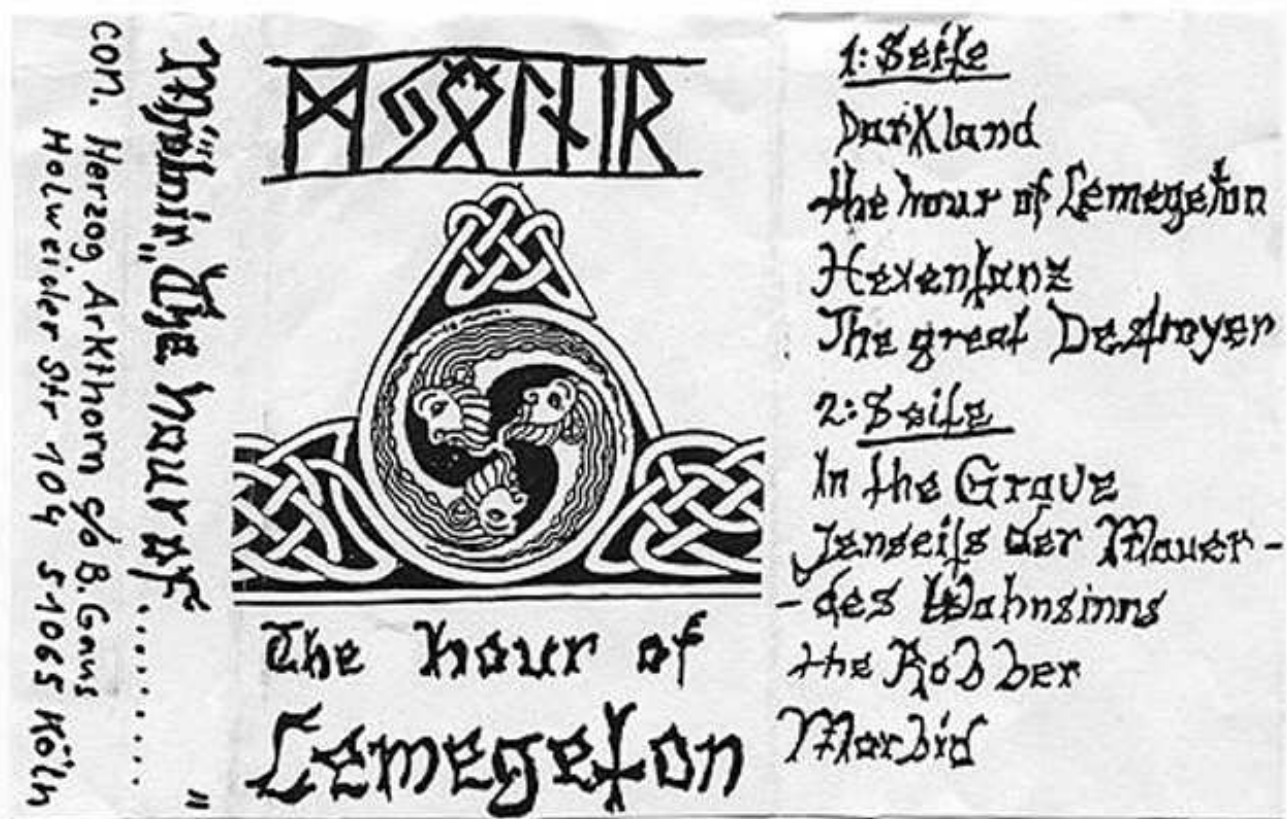 Mjölnir „The hour of .......... "
con. Herzog Arkthorn c/o B.
Holweider Str 104 51065 Köln
ᛗᛃᛟᛚᚾᛁᚱ
The hour of
Lemegeton
1:Seite
Darkland
the hour of Lemegeton
Hexentanz
The great Destroyer
2:Seite
In the Grave
Jenseits der Mauer-
-des Wahnsinns
the Robber
Morbid